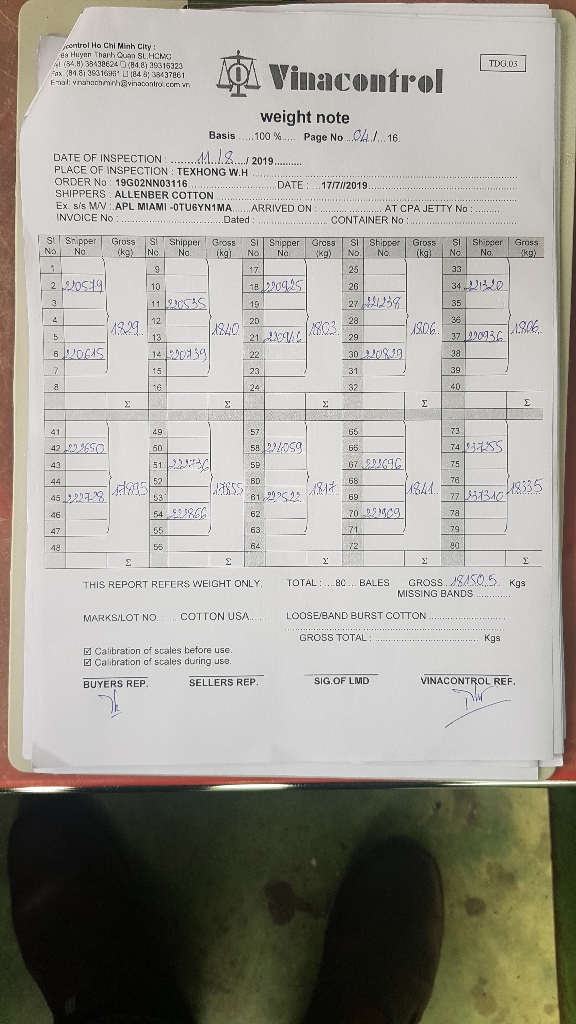 control Ho Chi Minh City :
Huyen Thanh Quan St.,HCMC
(84.8) 38438624 (84.8) 39316323
Fax. (84.8) 39316961 (84.8) 38437861
Email: vinahochiminh@vinacontrol.com.vn
TDG.03
Vinacontrol
weight note
Basis .....100 %..... Page No ...04./... 16.
DATE OF INSPECTION : .........11./.8..../ 2019..........
PLACE OF INSPECTION : TEXHONG W.H
ORDER No : 19G02NN03116 DATE : ...17/7//2019
SHIPPERS : ALLENBER COTTON
Ex. s/s M/V : APL MIAMI -0TU6YN1MA ARRIVED ON : AT CPA JETTY No :
INVOICE No : Dated : CONTAINER No :
SI No. Shipper No. Gross (kg) SI No. Shipper No. Gross (kg) SI No Shipper No. Gross (kg) SI No. Shipper No. Gross (kg) SI No. Shipper No. Gross (kg)
1 9 17 25 33
2 220579 10 18 220925 26 34 221320
3 11 220535 19 27 221238 35
4 12 20 28 36
1829 1840 1803 1806 1806
5 13 21 29 37 220936
6 220615 14 220739 22 30 220829 38
7 15 23 31 39
8 16 24 32 40
Σ Σ Σ Σ Σ
41 49 57 65 73
42 222650 50 58 221059 66 74 237255
43 51 222736 59 67 222696 75
44 52 60 68 76
1789.5 1785.5 1817 1841 1833.5
45 222728 53 61 222522 69 77 237310
46 54 222866 62 70 222909 78
47 55 63 71 79
48 56 64 72 80
Σ Σ Σ Σ Σ
THIS REPORT REFERS WEIGHT ONLY. TOTAL: ...80... BALES GROSS 18150.5 Kgs
MISSING BANDS
MARKS/LOT NO. : .... COTTON USA..... LOOSE/BAND BURST COTTON
GROSS TOTAL : Kgs
☑ Calibration of scales before use.
☑ Calibration of scales during use.
BUYERS REP. SELLERS REP. SIG.OF LMD VINACONTROL REF.